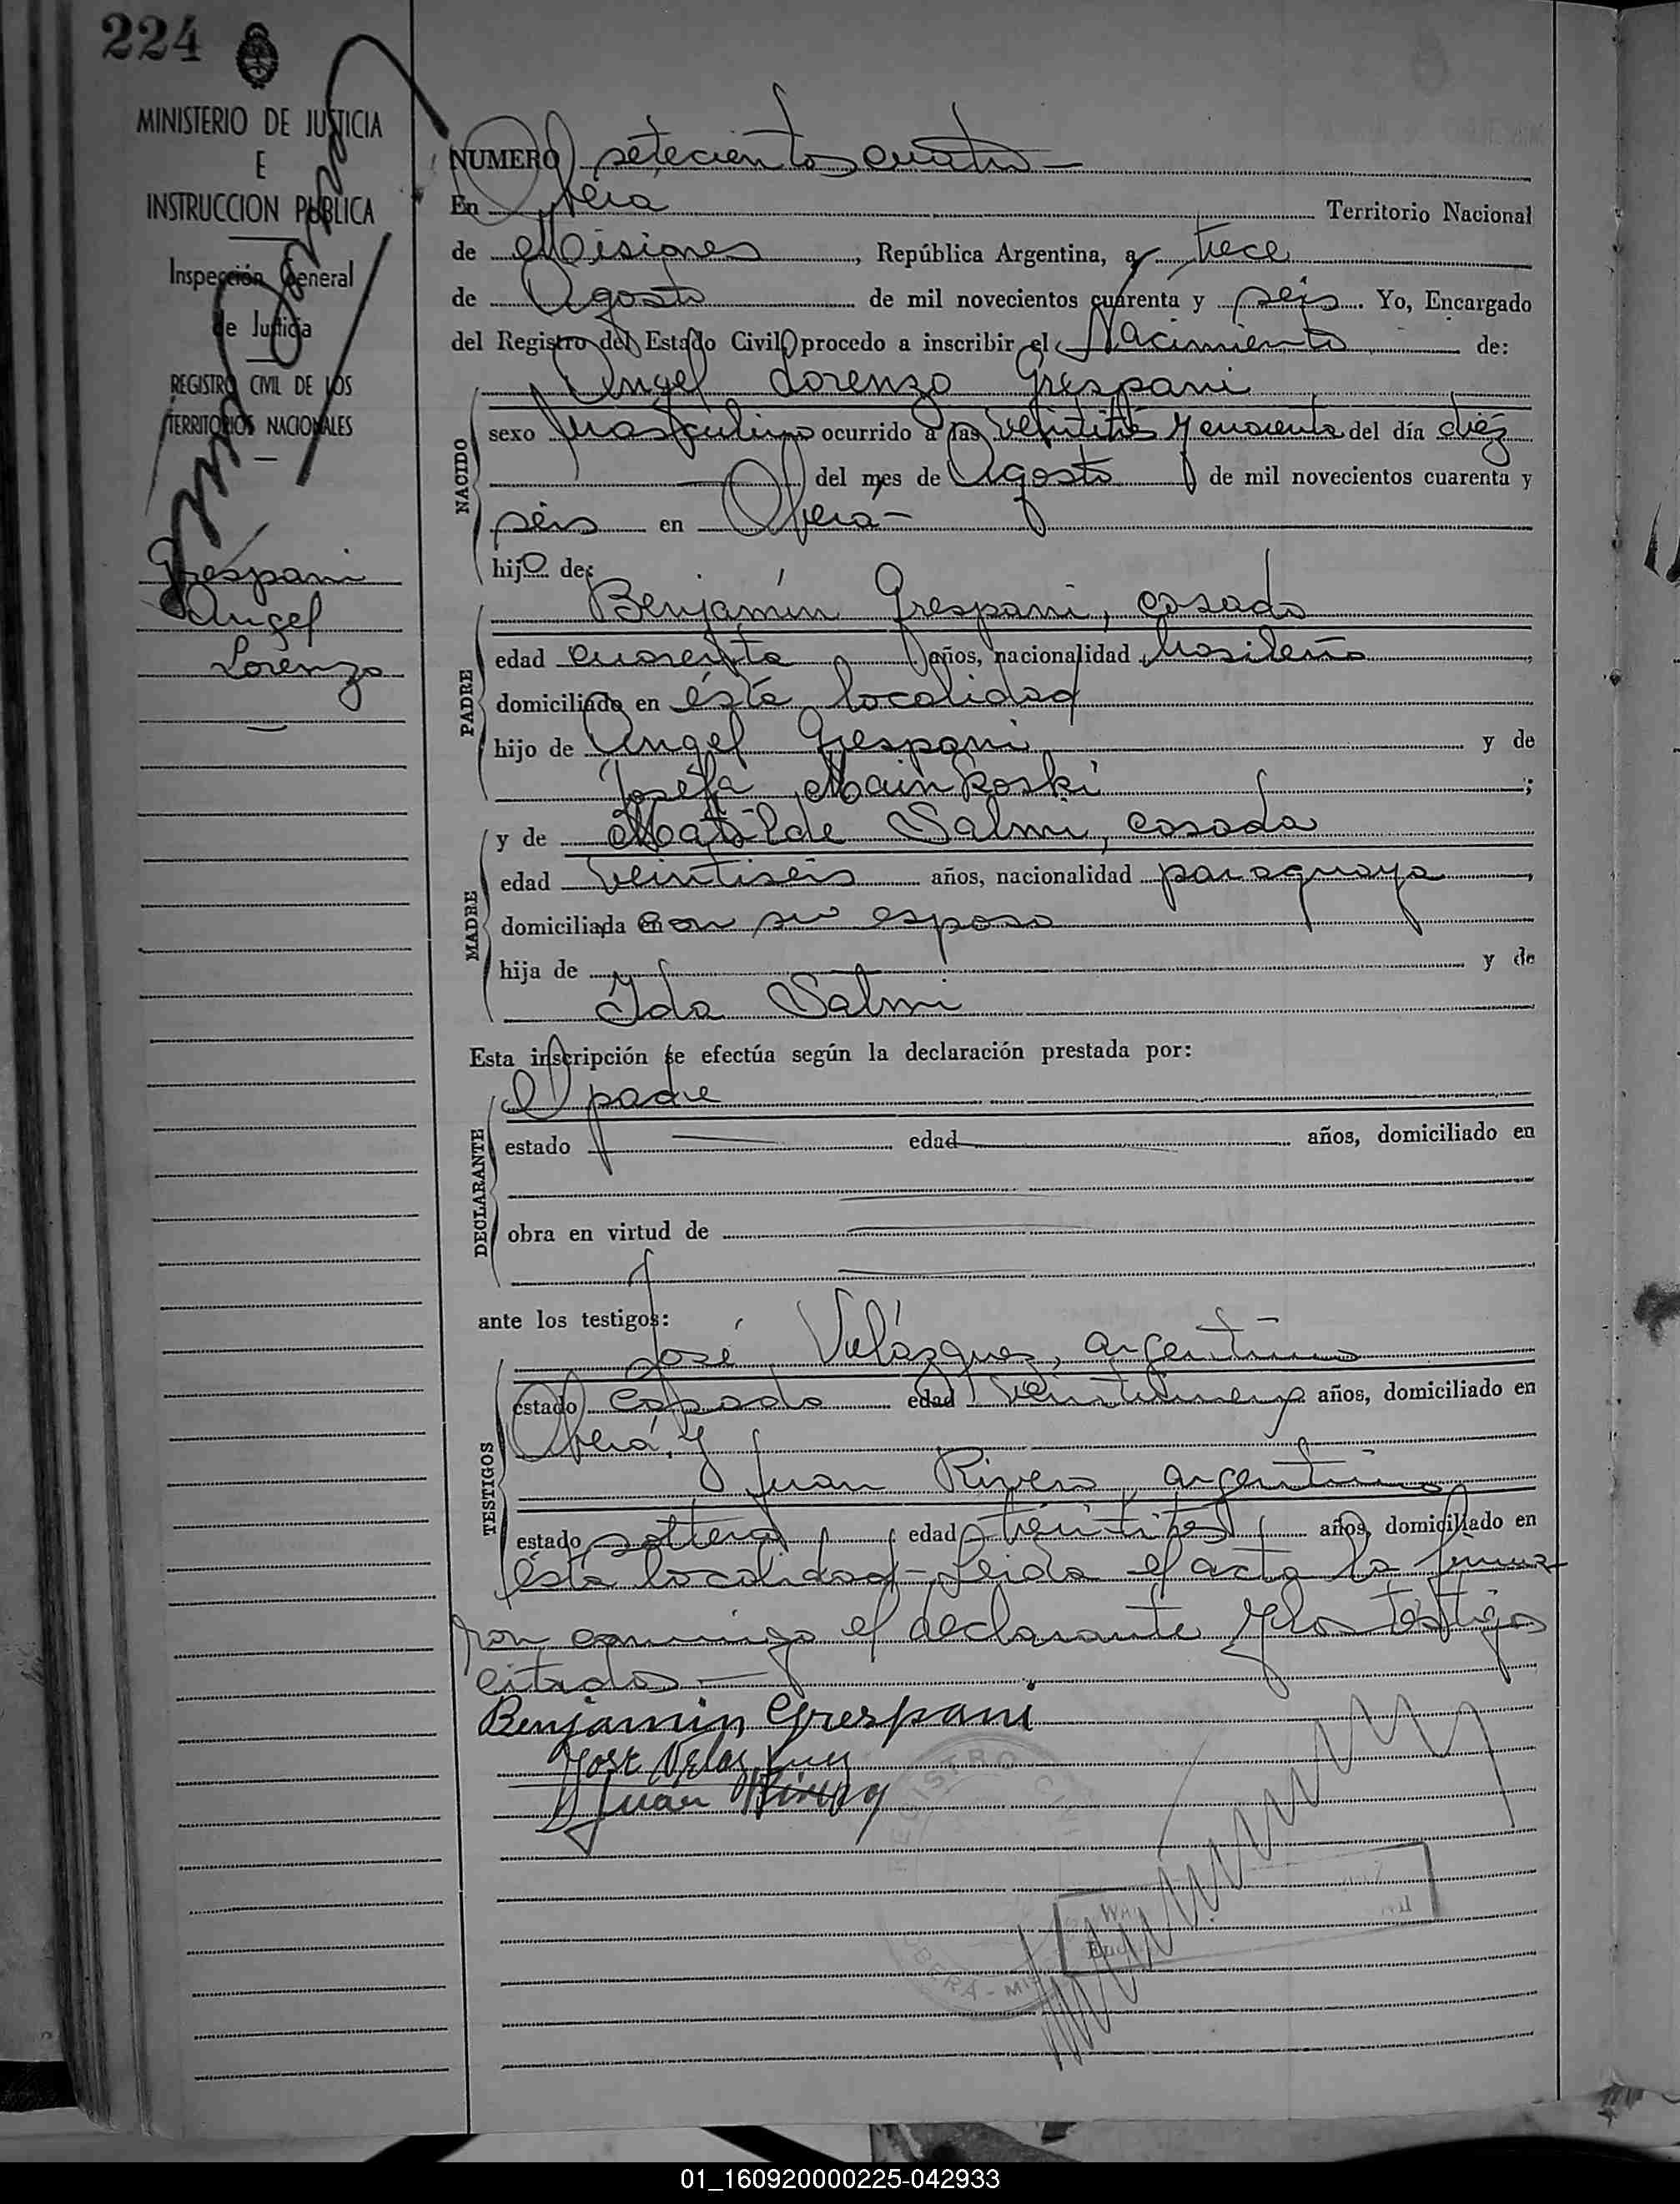 224
MINISTERIO DE JUSTICIA
E
INSTRUCCION PUBLICA
Inspección General
de Justicia
REGISTRO CIVIL DE LOS
TERRITORIOS NACIONALES
Grespani
Angel
Lorenzo
NUMERO setecientos cuatro
En Oberá Territorio Nacional
de Misiones, República Argentina, a trece
de Agosto de mil novecientos cuarenta y seis. Yo, Encargado
del Registro del Estado Civil, procedo a inscribir el Nacimiento de:
Angel Lorenzo Grespani
NACIDO
sexo Masculino ocurrido a las veintitrés y cuarenta del día diéz
del mes de Agosto de mil novecientos cuarenta y
seis en Oberá-
hijo de:
Benjamín Grespani, casado
PADRE
edad cuarenta años, nacionalidad brasileño
domiciliado en ésta localidad
hijo de Angel Grespani y de
Josefa Mainkoski;
y de Matilde Salmi, casada
MADRE
edad veintiseis años, nacionalidad paraguaya,
domiciliada con su esposo
hija de y de
Ida Salmi
Esta inscripción se efectúa según la declaración prestada por:
el padre
DECLARANTE
estado edad años, domiciliado en
obra en virtud de
ante los testigos:
José Velázquez, argentino
TESTIGOS
estado casado edad veintinueve años, domiciliado en
Oberá, y
Juan Rivero, argentino
estado soltero, edad treintitres, años, domiciliado en
ésta localidad-Leida el acta la firma-
ron conmigo el declarante y los testigos
citados.-
Benjamin Grespani
Jose Velazquez
Juan
REGISTRO CIVIL
OBERÁ - MIS
01_160920000225-042933